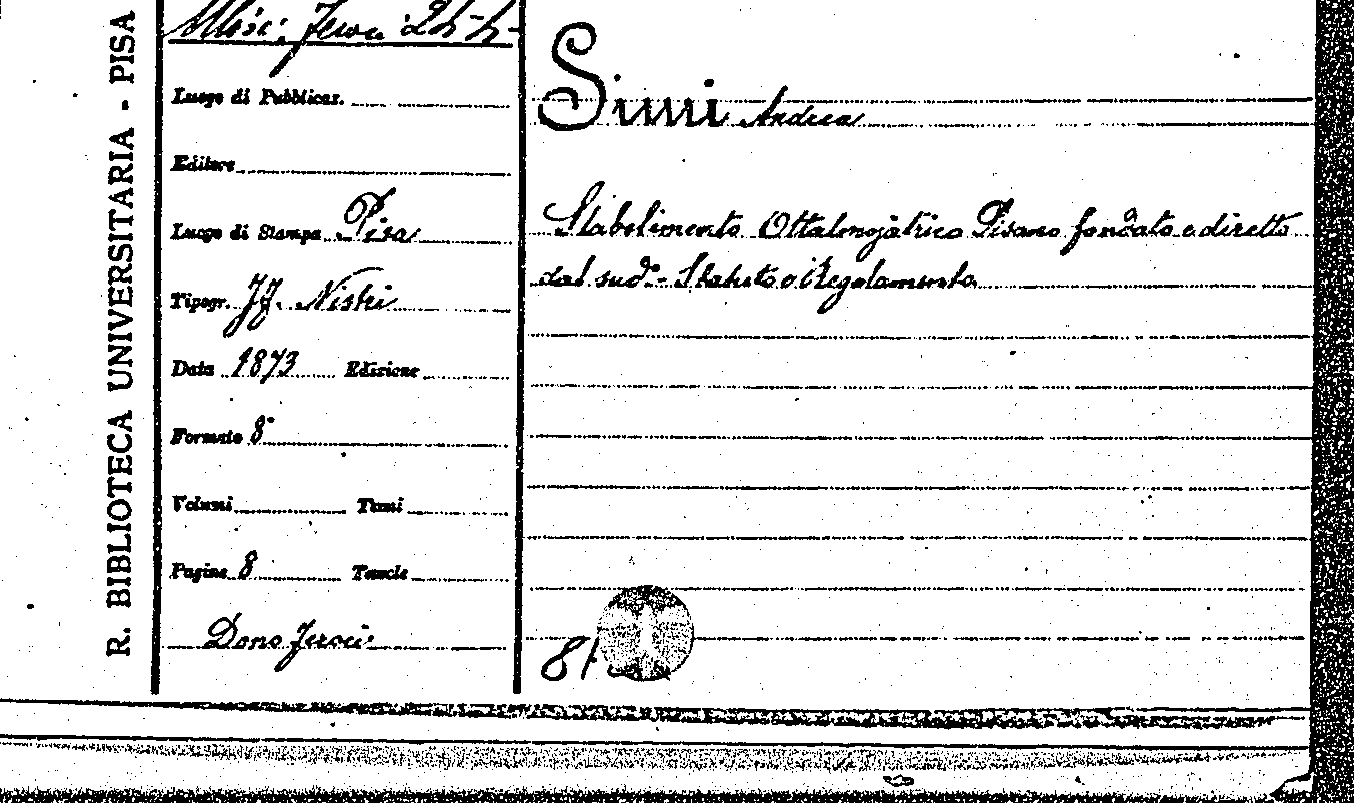 R. BIBLIOTECA UNIVERSITARIA - PISA
Misc. Feroci 24-4-
Luogo di Pubblicaz.
Editore
Luogo di Stampa Pisa
Tipogr. FF. Nistri
Data 1873 Edizione
Formato 8°
Volumi Tomi
Pagine 8 Tavole
Dono Feroci
Simi Andrea
Stabelimento Ottalmojàtrico Pisano fondato e diretto
dal sudº. - Statuto e Regolamento